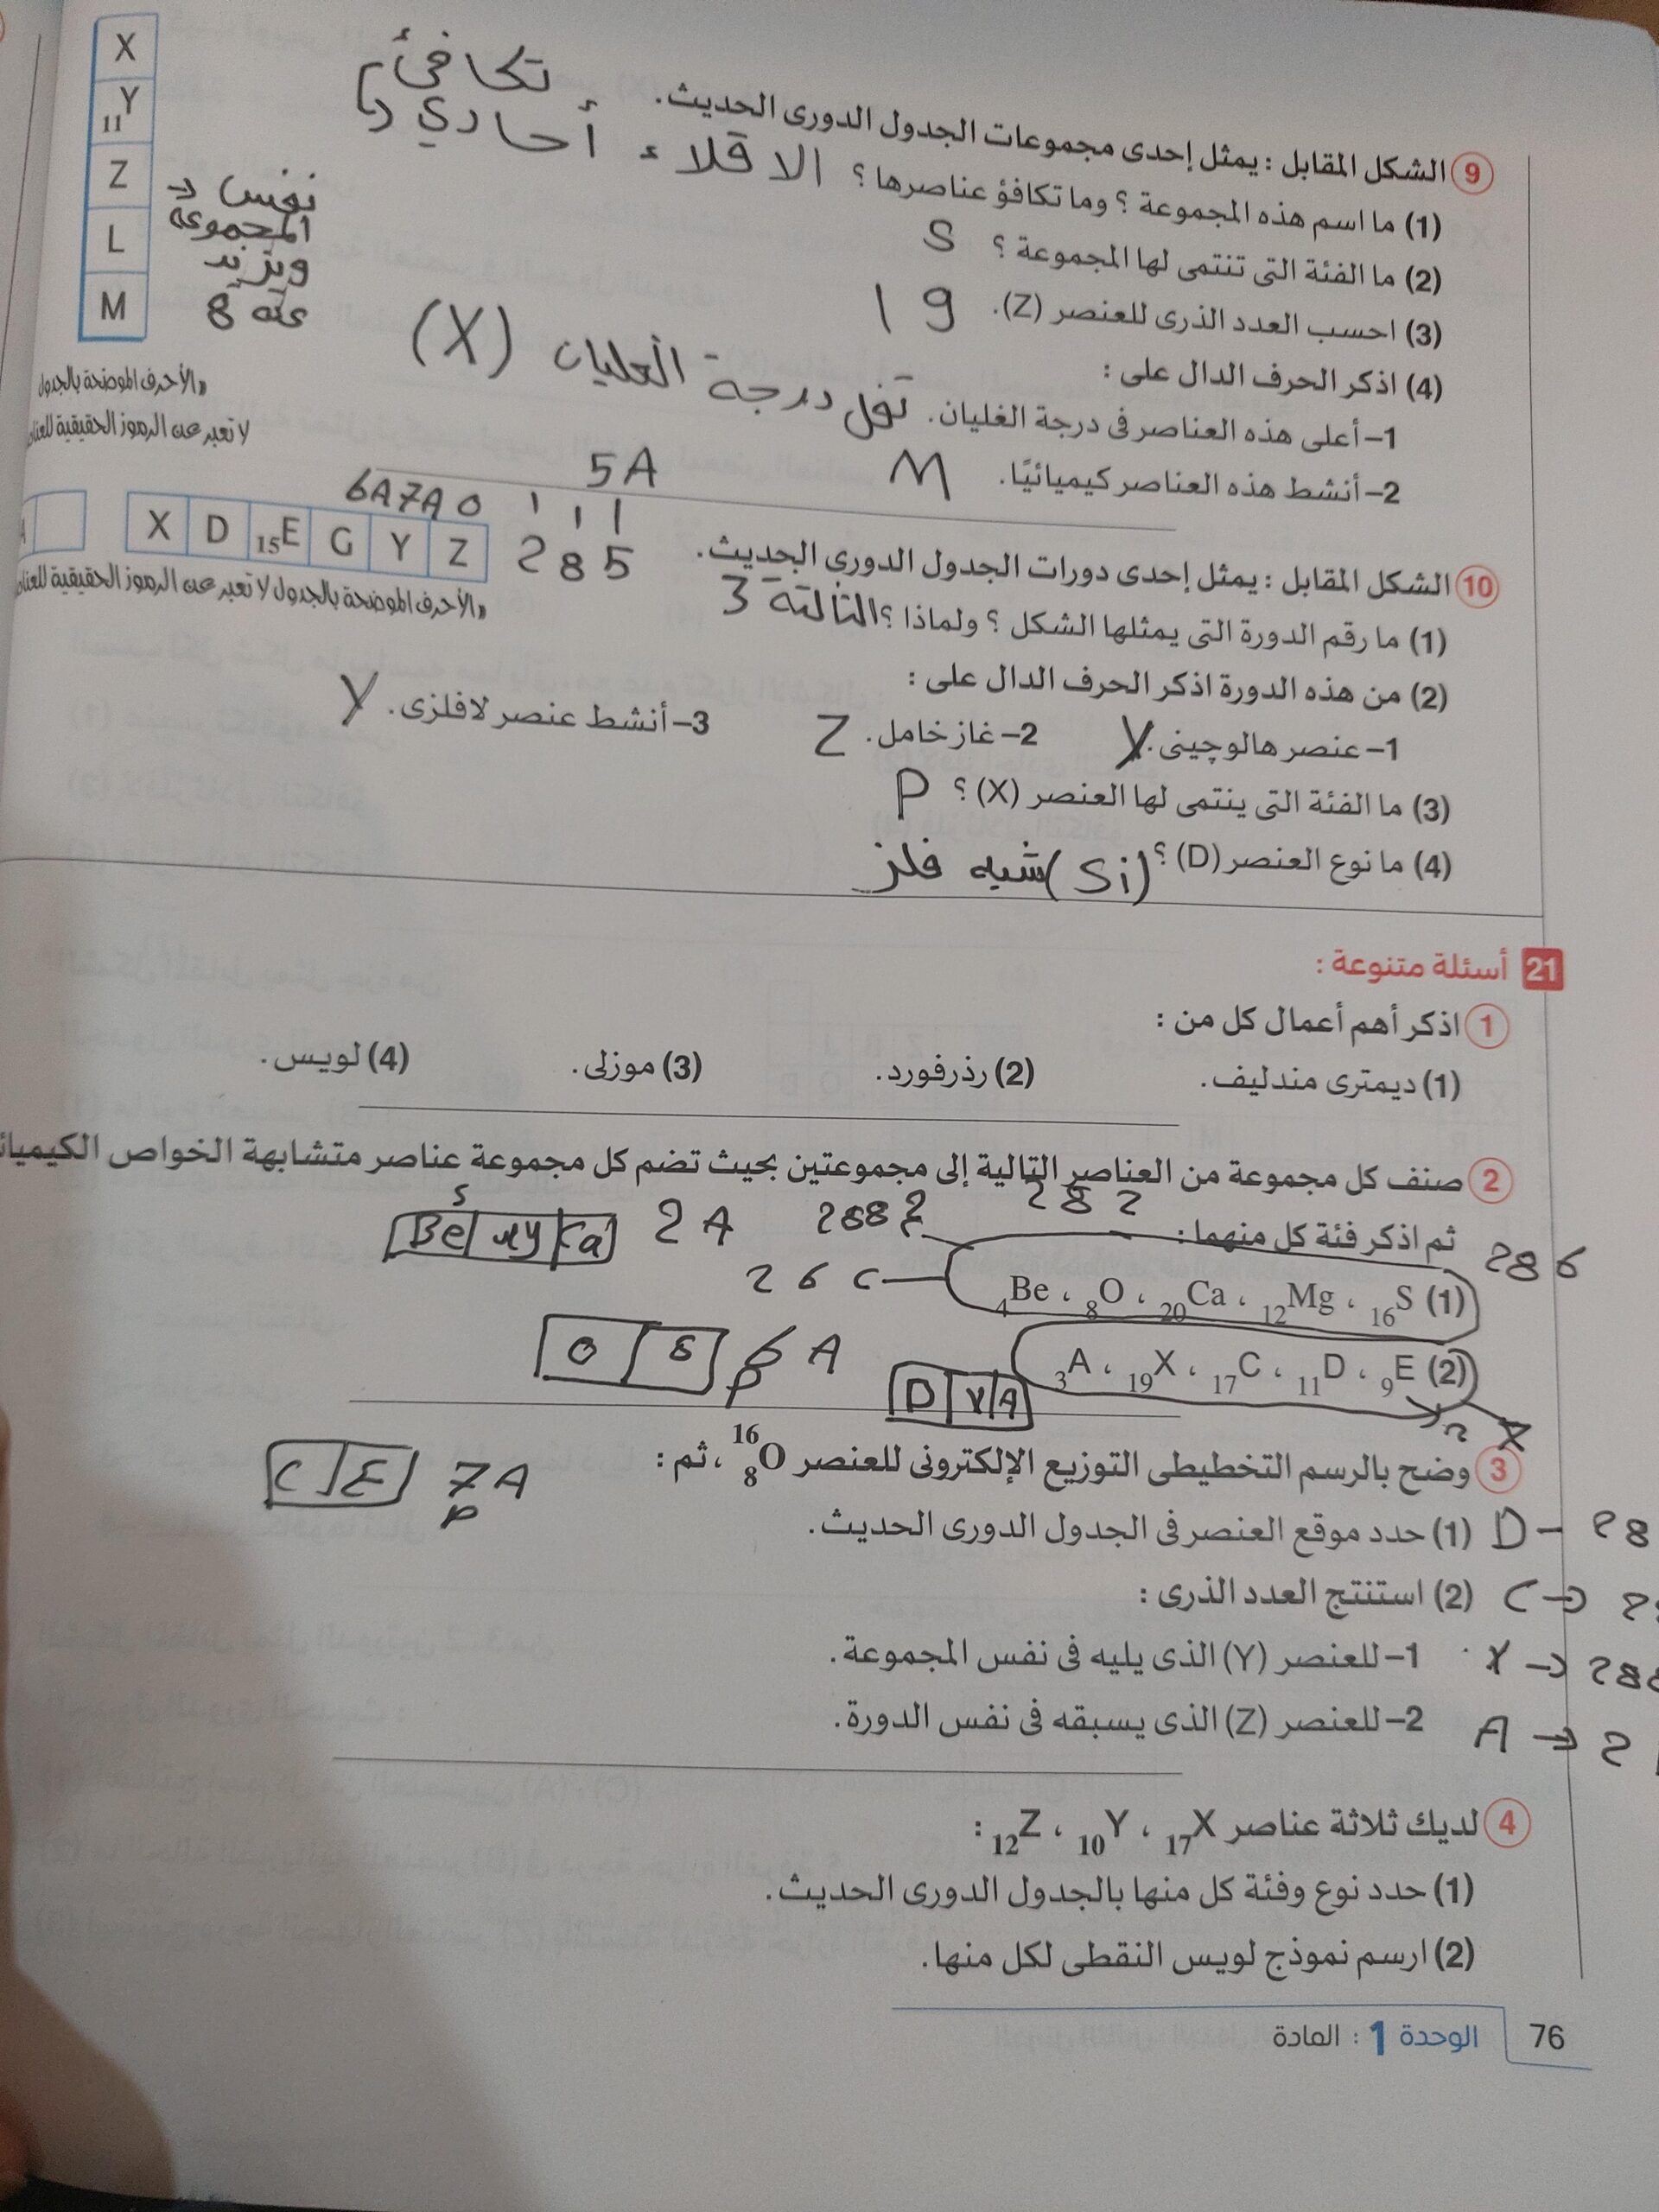 X
11Y
Z
L
M
نفس
المجموعه
ويزيد
عنه 8
«الأحرف الموضحة بالجدول
لا تعبر عن الرموز الحقيقية للعنا
تكافئ
9 الشكل المقابل : يمثل إحدى مجموعات الجدول الدورى الحديث.
(1) ما اسم هذه المجموعة ؟ وما تكافؤ عناصرها ؟ الاقلاء أحادي
(2) ما الفئة التى تنتمى لها المجموعة ؟ S
(3) احسب العدد الذرى للعنصر (Z). 19
(4) اذكر الحرف الدال على :
1– أعلى هذه العناصر فى درجة الغليان. تقل درجة الغليان (X)
2– أنشط هذه العناصر كيميائيًا. M
6A 7A 0 5A
X D 15E G Y Z 2 8 5
«الأحرف الموضحة بالجدول لا تعبر عن الرموز الحقيقية للعنا
10 الشكل المقابل : يمثل إحدى دورات الجدول الدورى الحديث.
(1) ما رقم الدورة التى يمثلها الشكل ؟ ولماذا ؟ الثالثة 3
(2) من هذه الدورة اذكر الحرف الدال على :
1– عنصر هالوچينى. Y 2– غاز خامل. Z 3– أنشط عنصر لافلزى. Y
(3) ما الفئة التى ينتمى لها العنصر (X) ؟ P
(4) ما نوع العنصر (D) ؟ (Si) شبه فلز
21 أسئلة متنوعة :
1 اذكر أهم أعمال كل من :
(1) ديمترى مندليف. (2) رذرفورد. (3) موزلى. (4) لويس.
2 صنف كل مجموعة من العناصر التالية إلى مجموعتين بحيث تضم كل مجموعة عناصر متشابهة الخواص الكيميائ
ثم اذكر فئة كل منهما : 2 8 2 2 8 8 2 2A S
2 8 6
(1) 16S ، 12Mg ، 20Ca ، 8O ، 4Be 2 6
O S 6A P
(2) 9E ، 11D ، 17C ، 19X ، 3A
D X A
3 وضح بالرسم التخطيطى التوزيع الإلكترونى للعنصر 16 8O ، ثم :
C E 7A P
(1) حدد موقع العنصر فى الجدول الدورى الحديث. D – 2 8
(2) استنتج العدد الذرى :
1– للعنصر (Y) الذى يليه فى نفس المجموعة.
2– للعنصر (Z) الذى يسبقه فى نفس الدورة.
4 لديك ثلاثة عناصر 17X ، 10Y ، 12Z :
(1) حدد نوع وفئة كل منها بالجدول الدورى الحديث.
(2) ارسم نموذج لويس النقطى لكل منها.
76 الوحدة 1 : المادة